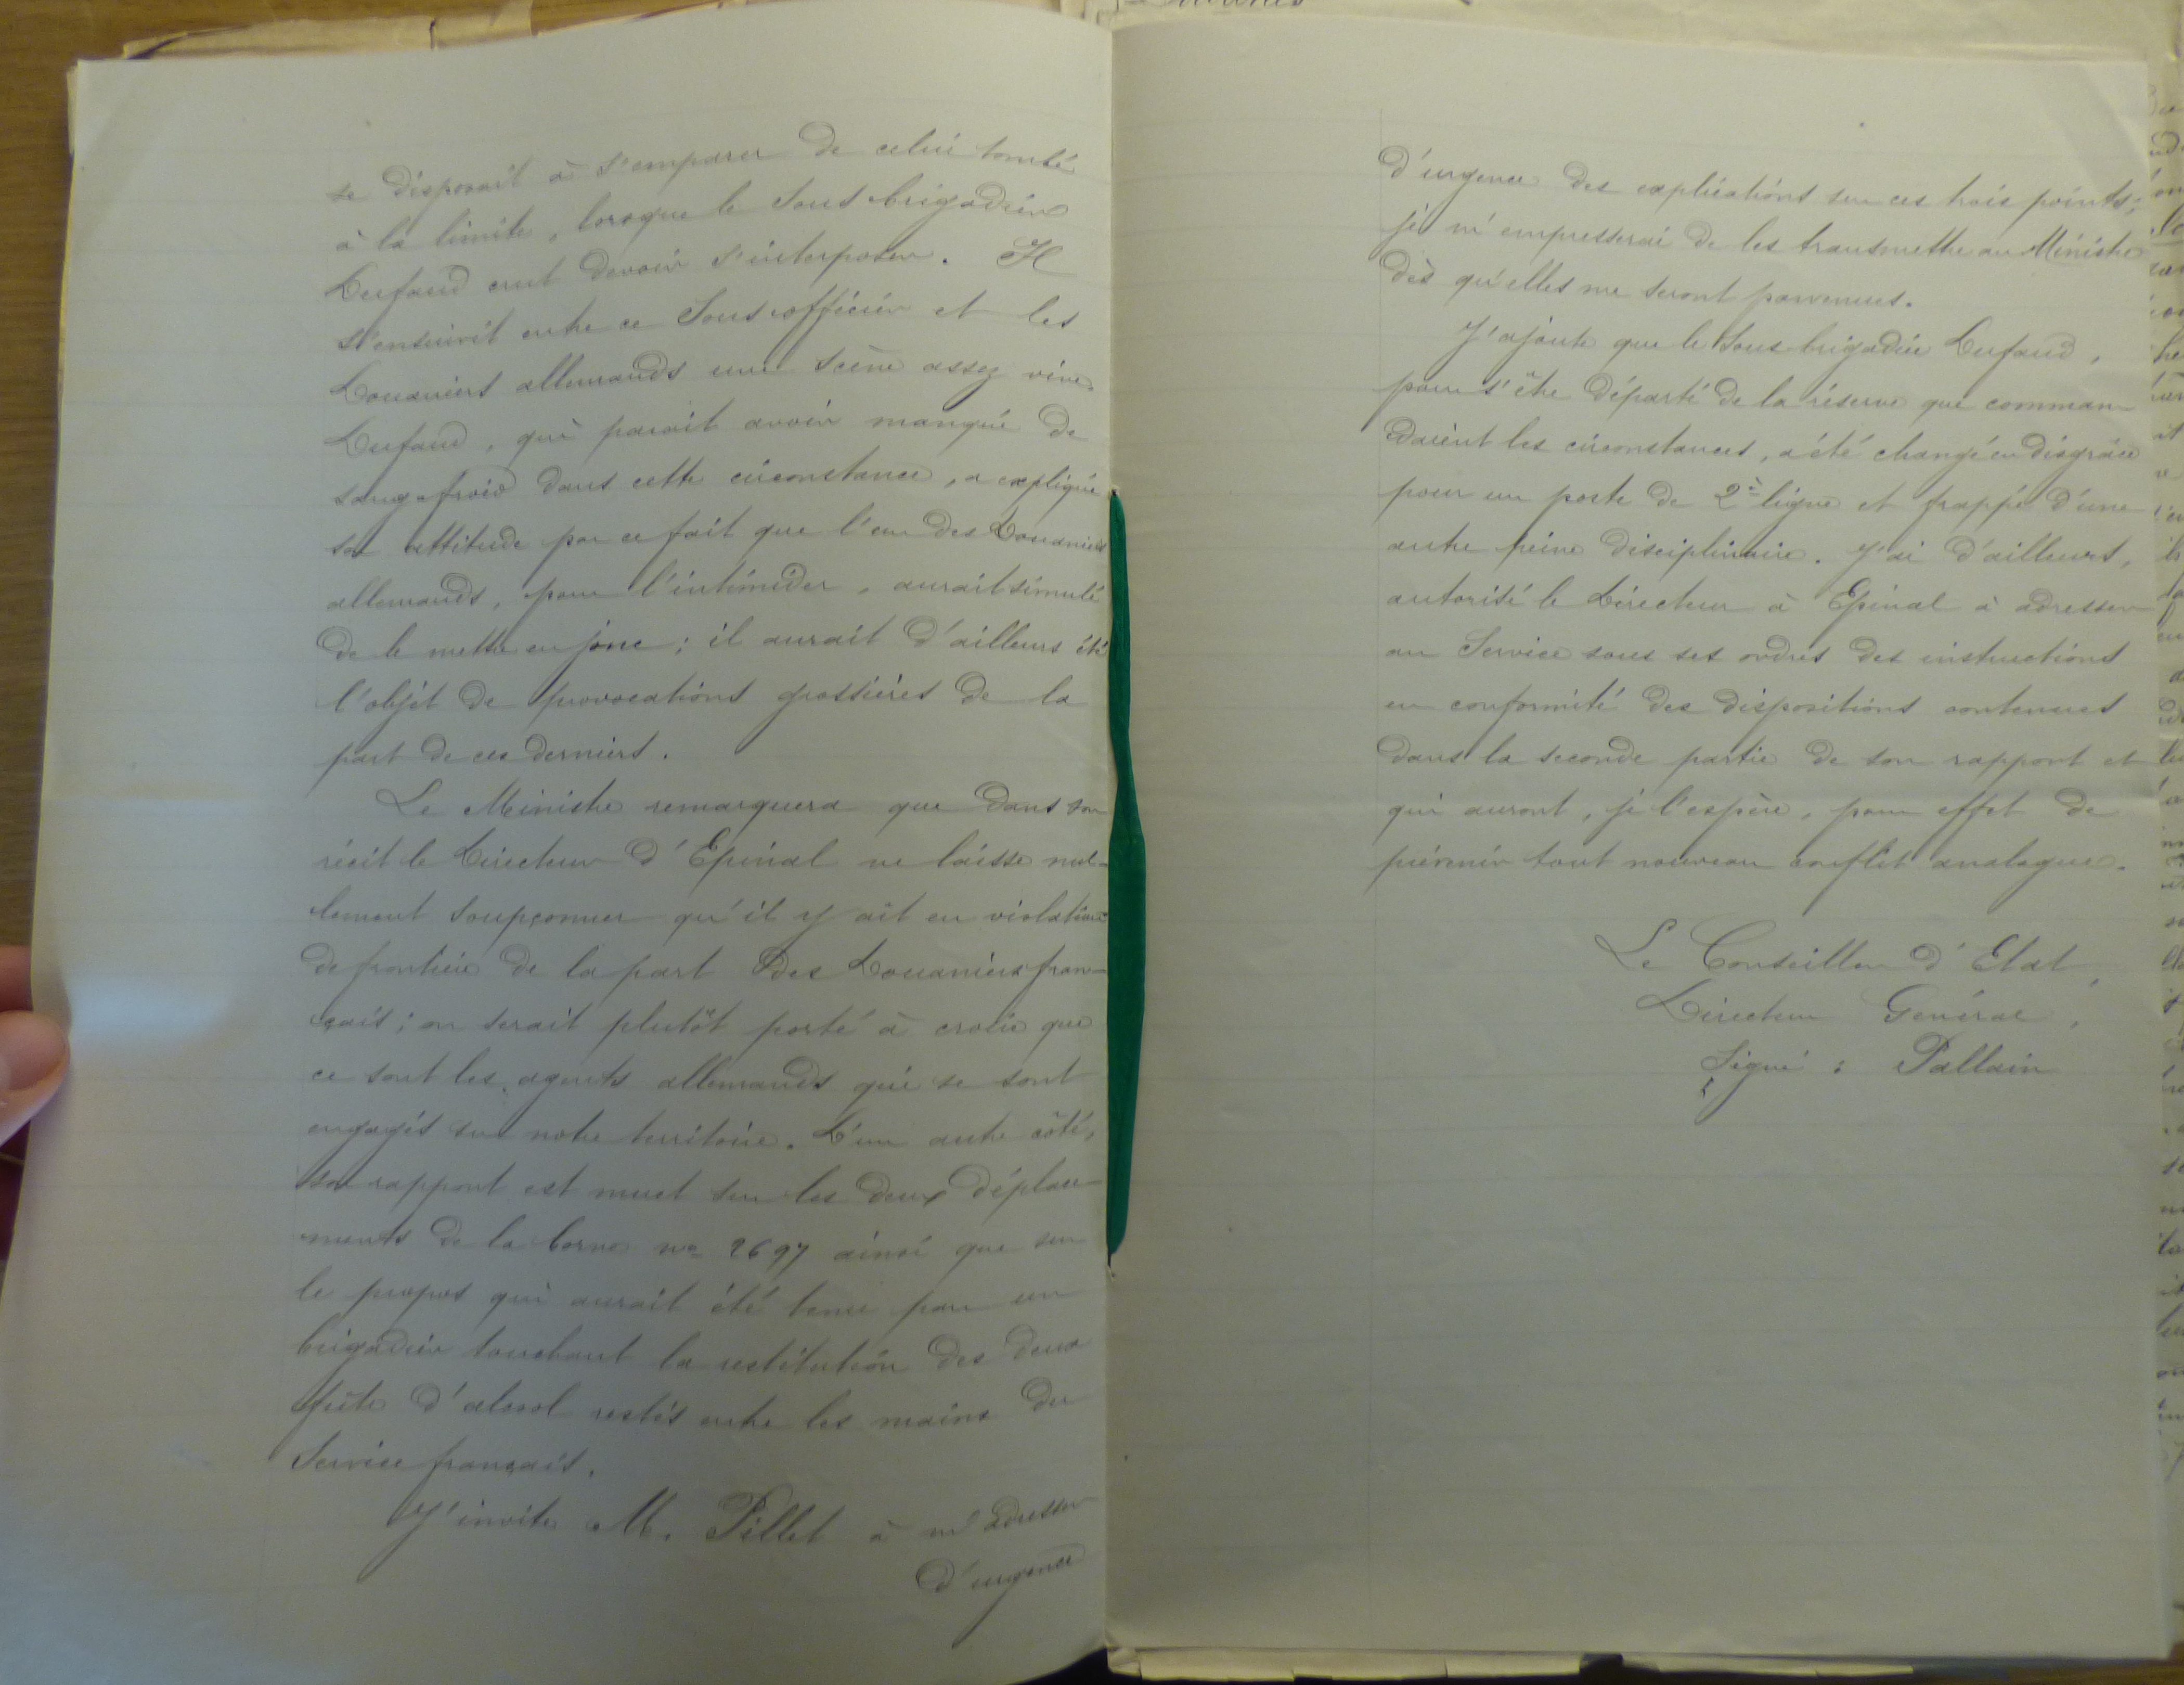 se disposait à s'emparer de celui tombé
à la limite, lorsque le Sous brigadier
Dufaud crut devoir s'interposer. Il
s'ensuivit entre ce Sous officier et les
Douaniers allemands une scène assez vive.
Dufaud, qui parait avoir manqué de
sang-froid dans cette circonstance, a expliqué
son attitude par ce fait que l'un des Douaniers
allemands, pour l'intimider, aurait simulé
de le mettre en joue ; il aurait d'ailleurs été
l'objet de provocations grossières de la
part de ces derniers.
Le Ministre remarquera que dans son
récit le Directeur d'Epinal ne laisse nul-
lement soupçonner qu'il y ait eu violation
de frontière de la part des Douaniers fran-
çais ; on serait plutôt porté à croire que
ce sont les agents allemands qui se sont
engagés sur notre territoire. D'un autre côté,
son rapport est muet sur les deux déplace-
ments de la borne no 2697 ainsi que sur
le propos qui aurait été tenu par un
brigadier touchant la restitution des deux
fûts d'alcool restés entre les mains du
Service français.
J'invite M. Pillet à m'adresser
d'urgence
d'urgence des explications sur ces trois points ;
je m'empresserai de les transmettre au Ministre
dès qu'elles me seront parvenues.
J'ajoute que le Sous-brigadier Dufaud,
pour s'être départi de la réserve que comman-
daient les circonstances, a été changé en disgrâce
pour un poste de 2e ligne et frappé d'une
autre peine disciplinaire. J'ai d'ailleurs,
autorisé le Directeur à Epinal à adresser
au Service sous ses ordres des instructions
en conformité des dispositions contenues
dans la seconde partie de son rapport et
qui auront, je l'espère, pour effet de
prévenir tout nouveau conflit analogue.
Le Conseiller d'Etat,
Directeur Général,
Signé : Pallain